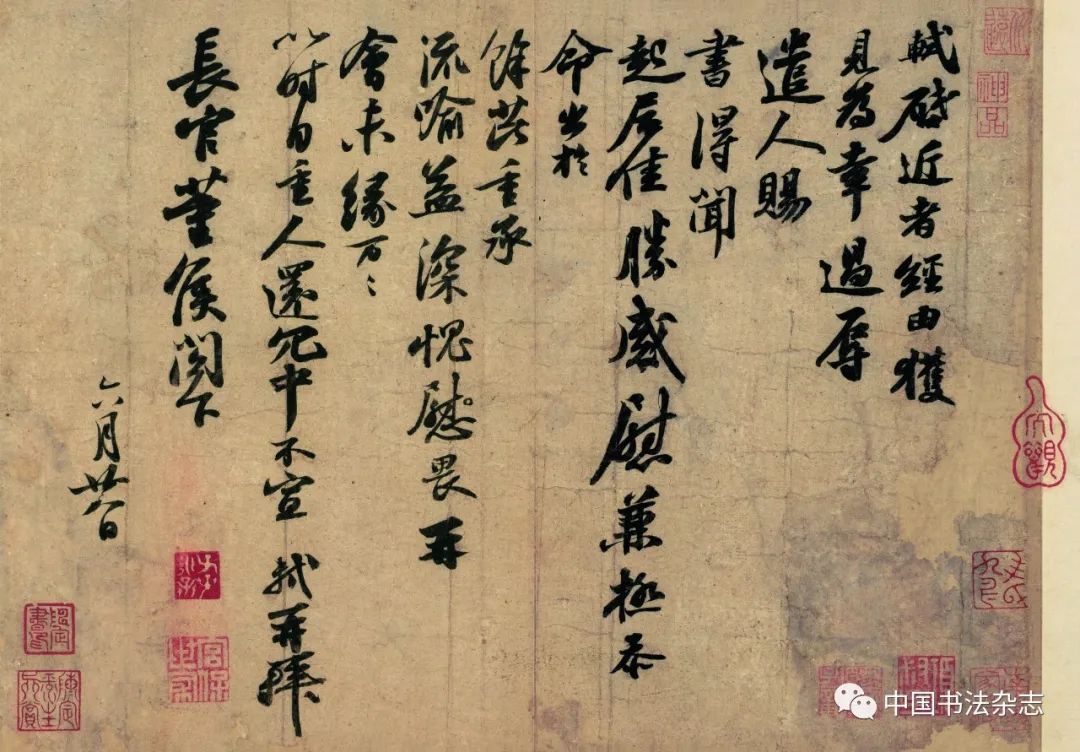 軾啟近者經由獲
見為幸過辱
遣人賜
書得聞
起居佳勝感慰兼極忝
命出於
餘芘重承
流喻益深愧慰畏再
會未緣万〻
以时自重人還冗中不宣 軾再拜
長官董侯閣下
六月廿八日
神品
中国书法杂志